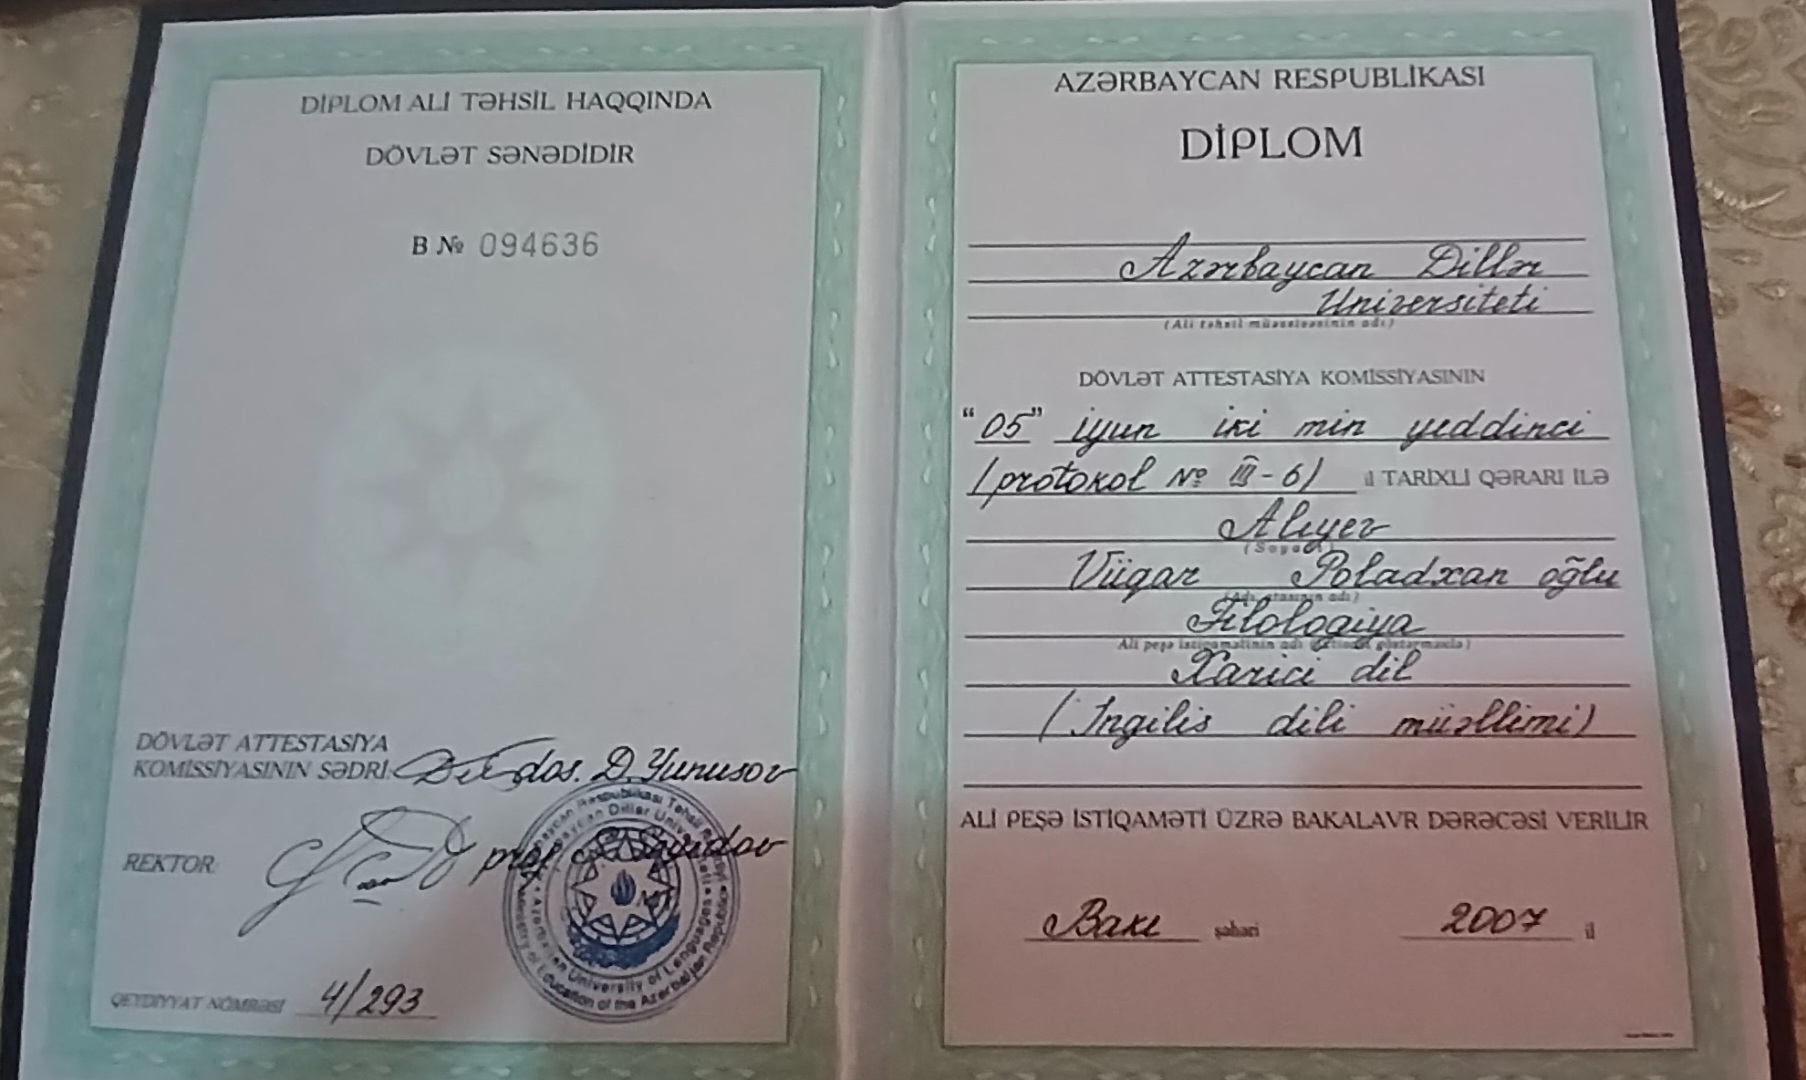 DİPLOM ALİ TƏHSİL HAQQINDA
DÖVLƏT SƏNƏDİDİR
B № 094636
DÖVLƏT ATTESTASİYA
KOMİSSİYASININ SƏDRİ: dos. D. Yunusov
REKTOR: prof.
QEYDİYYAT NÖMRƏSİ 4/293
Azərbaycan Respublikası Təhsil
Azərbaycan Dillər
Azerbaijan University of Languages
Ministry of Education of the Azerbaijan Republic
AZƏRBAYCAN RESPUBLİKASI
DİPLOM
Azərbaycan Dillər
Universiteti
(Ali təhsil müəssisəsinin adı)
DÖVLƏT ATTESTASİYA KOMİSSİYASININ
"05" iyun iki min yeddinci
/protokol № III-6/ il TARİXLİ QƏRARI İLƏ
Alıyev
(Soyadı)
Vüqar Poladxan oğlu
(Adı, atasının adı)
Filologiya
Ali peşə istiqamətinin adı göstərməklə)
Xarici dil
(İngilis dili müəllimi)
ALİ PEŞƏ İSTİQAMƏTİ ÜZRƏ BAKALAVR DƏRƏCƏSİ VERİLİR
Bakı şəhəri 2007 il